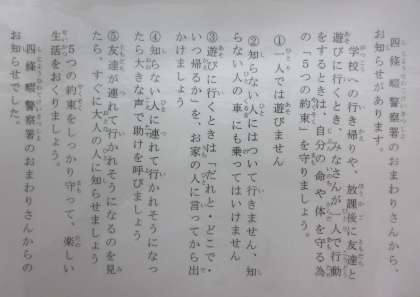 四條畷警察署のおまわりさんからの
お知らせがあります。
学校への行き帰りや、放課後に友達と
遊びに行くとき、みなさんが一人で行動
をするときは、自分の命や体を守る為
の「5つの約束」を守りましょう。
①一人では遊びません
②知らない人にはついて行きません、知
らない人の車にも乗ってはいけません
③遊びに行くときは「だれと・どこで・
いつ帰るか」を、お家の人に言ってから出
かけましょう
④知らない人に連れて行かれそうになっ
たら大きな声で助けを呼びましょう
⑤友達が連れて行かれそうになるのを見
たら、すぐに大人の人に知らせましょう
5つの約束をしっかり守って、楽しい
生活をおくりましょう。
四條畷警察署のおまわりさんからの
お知らせでした。